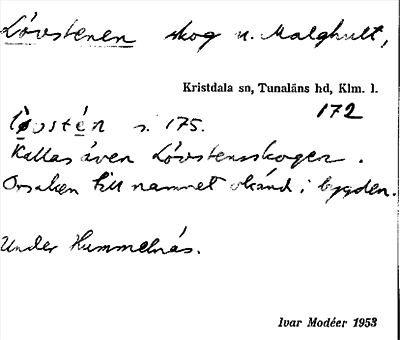 Lövstenen skog u. Malghult,
Kristdala sn, Tunaläns hd, Klm. l.
172
lövstén s. 175.
Kallas även Lövstensskogen.
Orsaken till namnet okänd i bygden.
Under Hummelnäs.
Ivar Modéer 1953